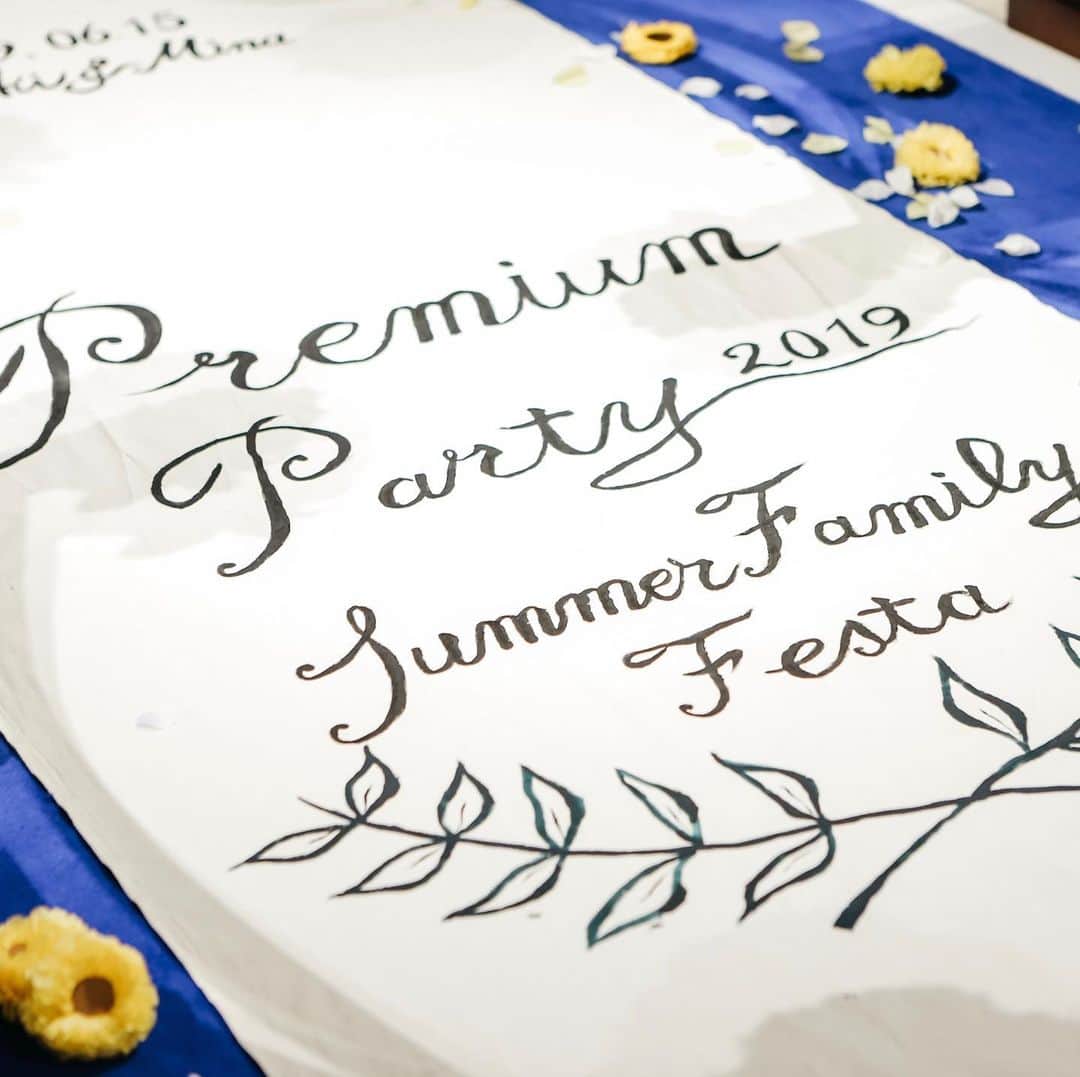 06.15
& Mina
Premium
Party 2019
Summer Family
Festa